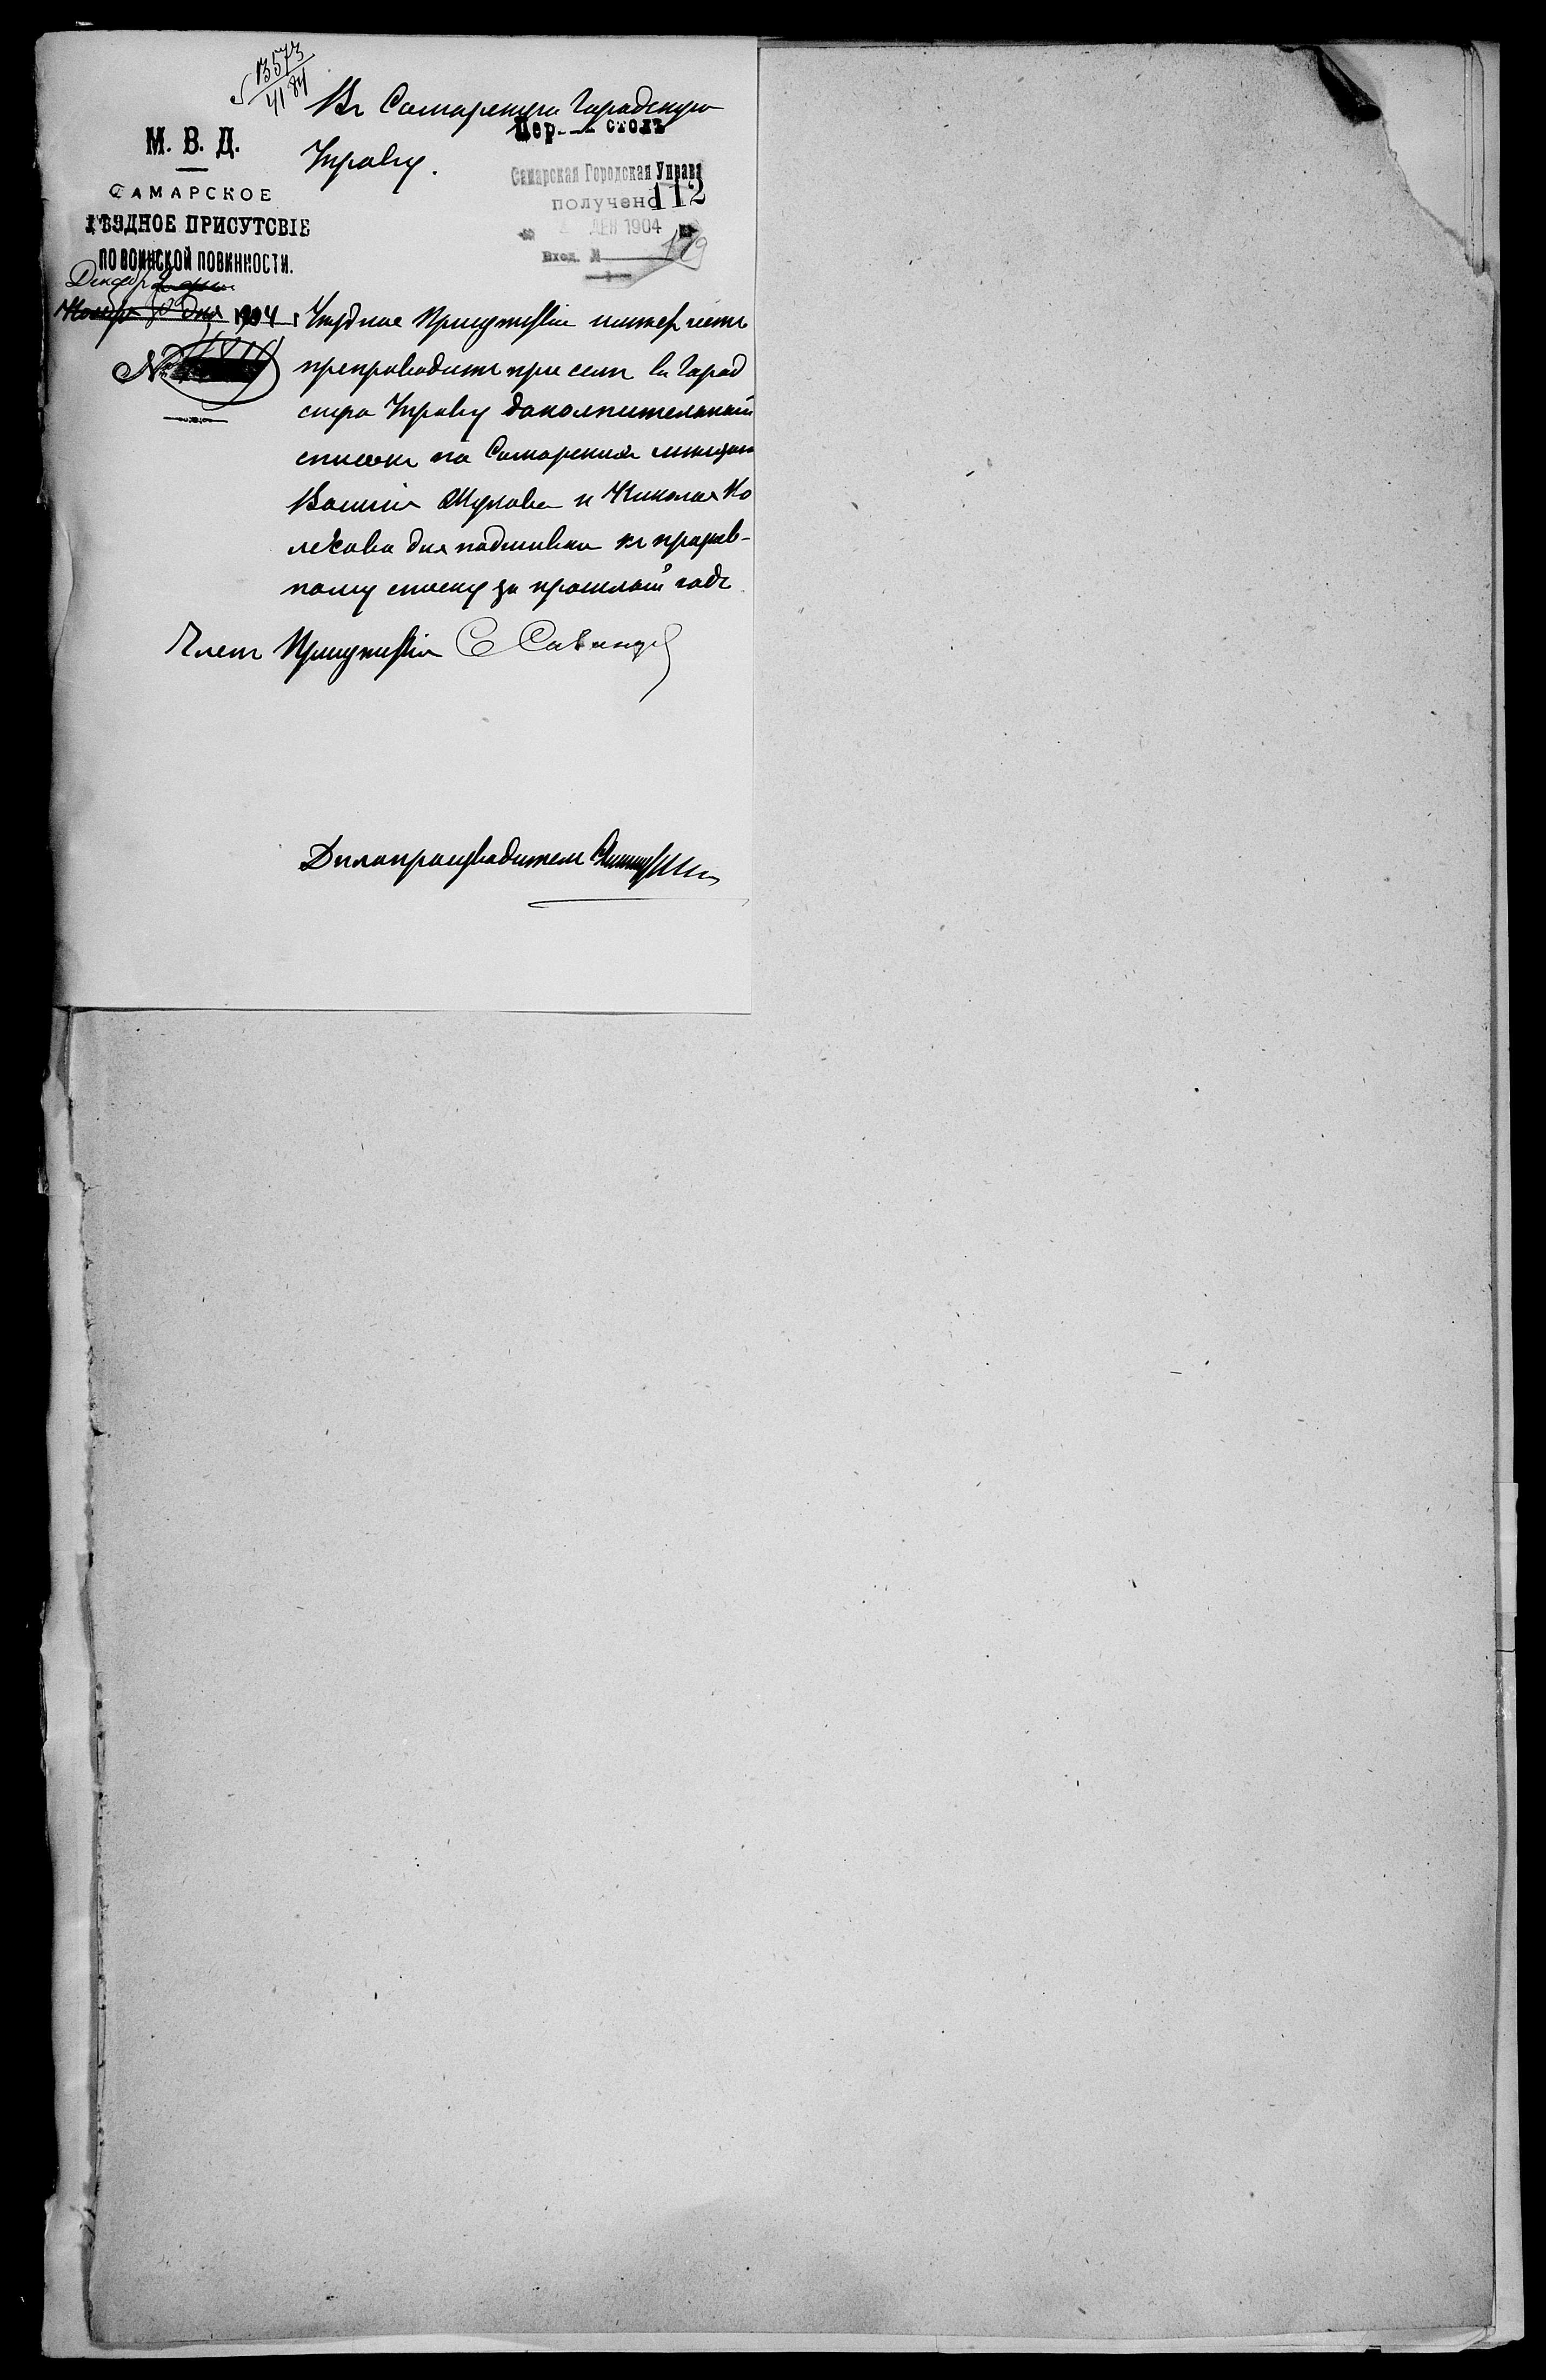 13573
41 84
М. В. Д.
САМАРСКОЕ
УѢЗДНОЕ ПРИСУТСВІЕ
ПО ВОИНСКОЙ ПОВИННОСТИ.
Декабря 2 дня
Ноября 30 дня 1904 г
№
Въ Самарскую Городскую
Управу.
Пер. столъ
Самарская Городская Управа
получено
112
ДЕК 1904
Вход. №
Уѣздное Присутствіе имѣетъ честь
препроводить при семъ въ Город
скую Управу дополнительный
списокъ на Самарскихъ мѣщанъ
Василія и Николая Ко
лесова для подшивки къ призыв-
ному списку за прошлый годъ
Членъ Присутствія С
Дѣлопроизводитель